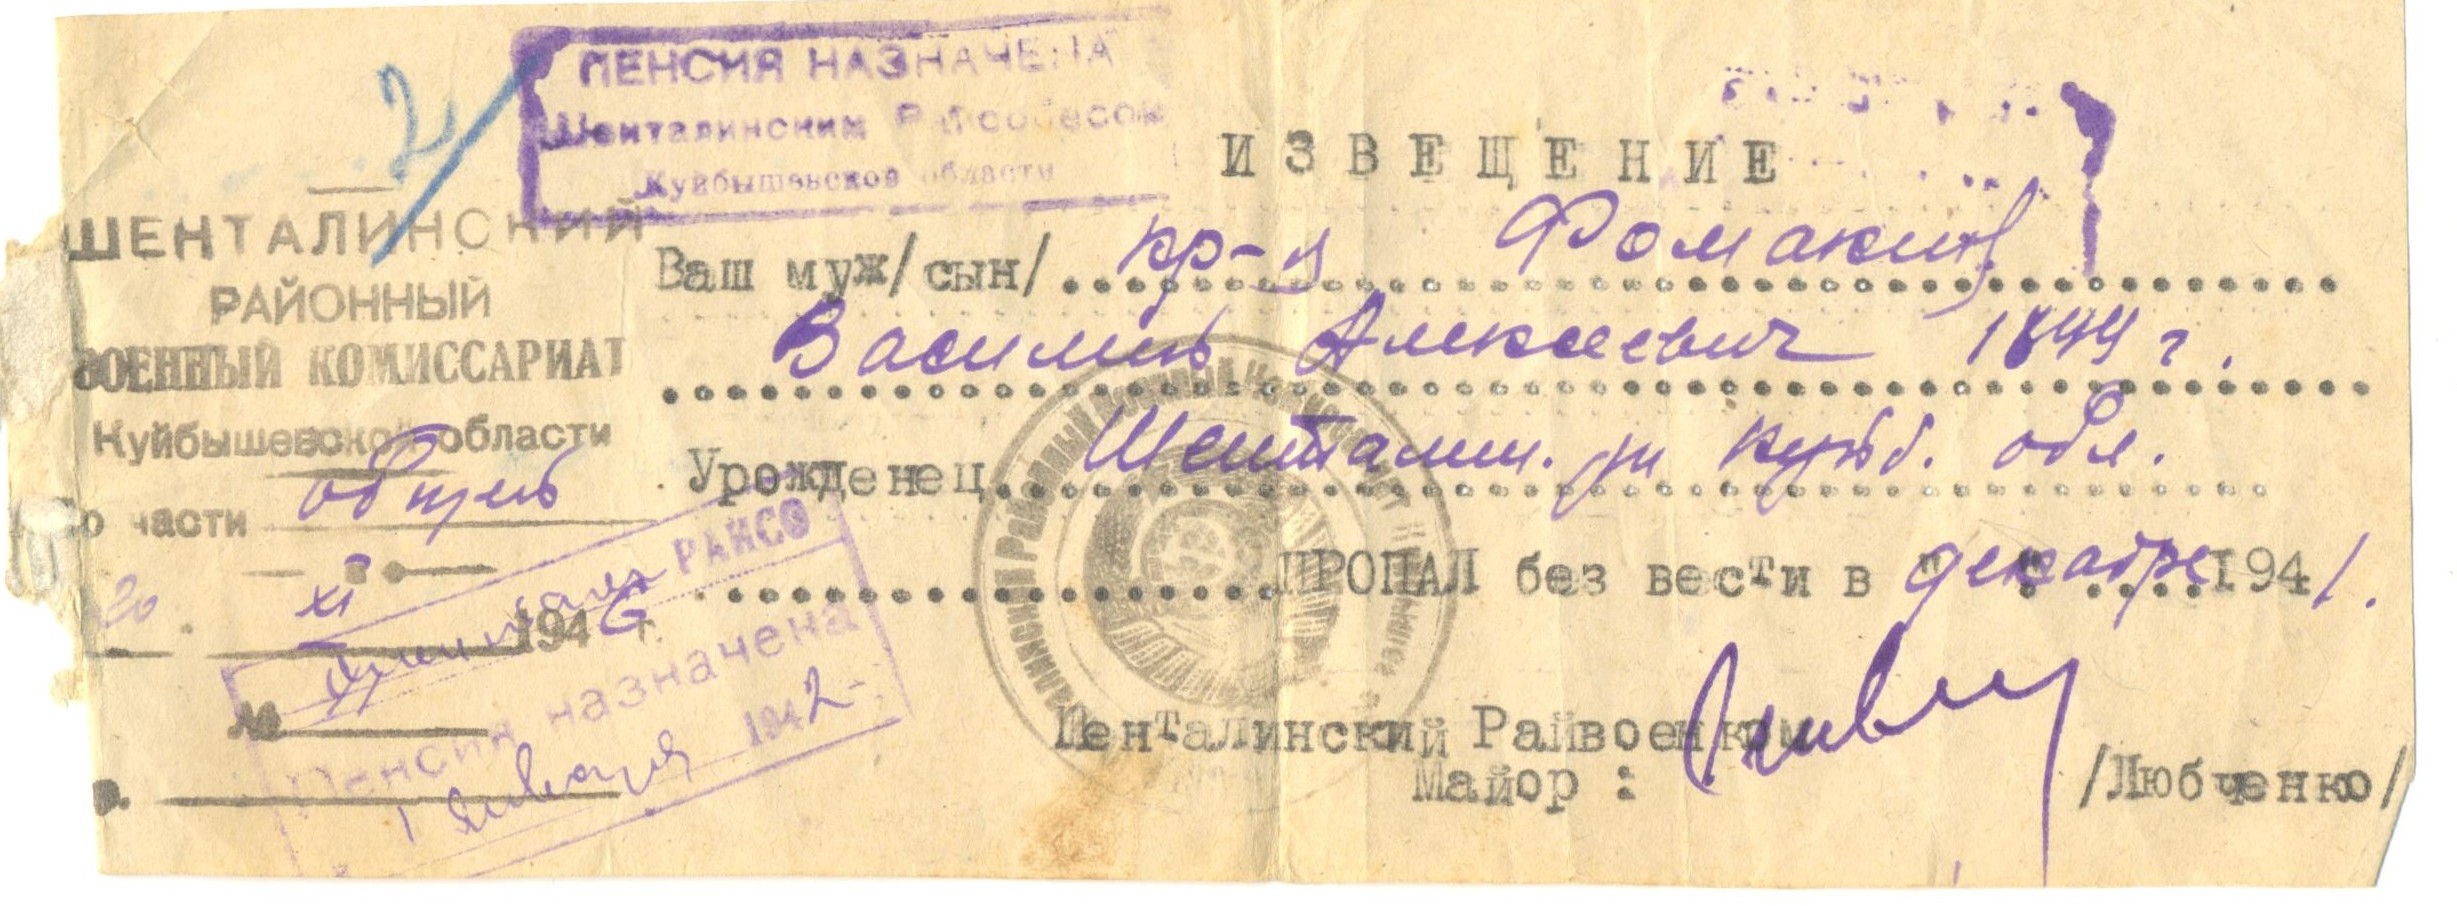 2
ПЕНСИЯ НАЗНАЧЕНА
Шенталинским Райсобесом
Куйбышевской области
ШЕНТАЛИНСКИЙ
РАЙОННЫЙ
ВОЕННЫЙ КОМИССАРИАТ
Куйбышевской области
По части общей
20. XI 1946 г.
№
РАЙСО
Пенсия назначена
1 января 1942
ИЗВЕЩЕНИЕ
Ваш муж/сын/ кр-ц Фомакин
Василий Алексеевич 1899 г.
Урожденец Шенталин. р-н Куйб. обл.
ПРОПАЛ без вести в декабре 1941.
Шенталинский Райвоенком
Майор : /Любченко/